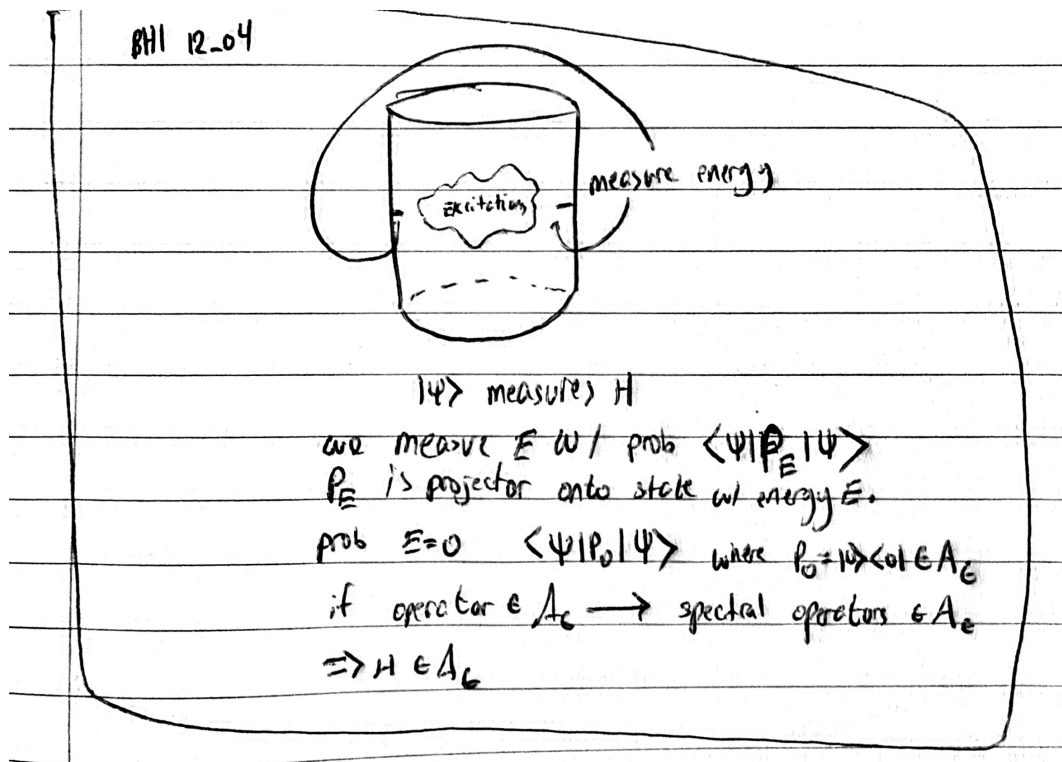 BHI 12_04
Excitations
measure energy
|ψ> measures H
we measure E w/ prob <ψ|P_E|ψ>
P_E is projector onto state w/ energy E.
prob E=0 <ψ|P_0|ψ> where P_0=|0><0| ∈ A_ϵ
if operator ∈ A_ϵ → spectral operators ∈ A_ϵ
=> H ∈ A_ϵ